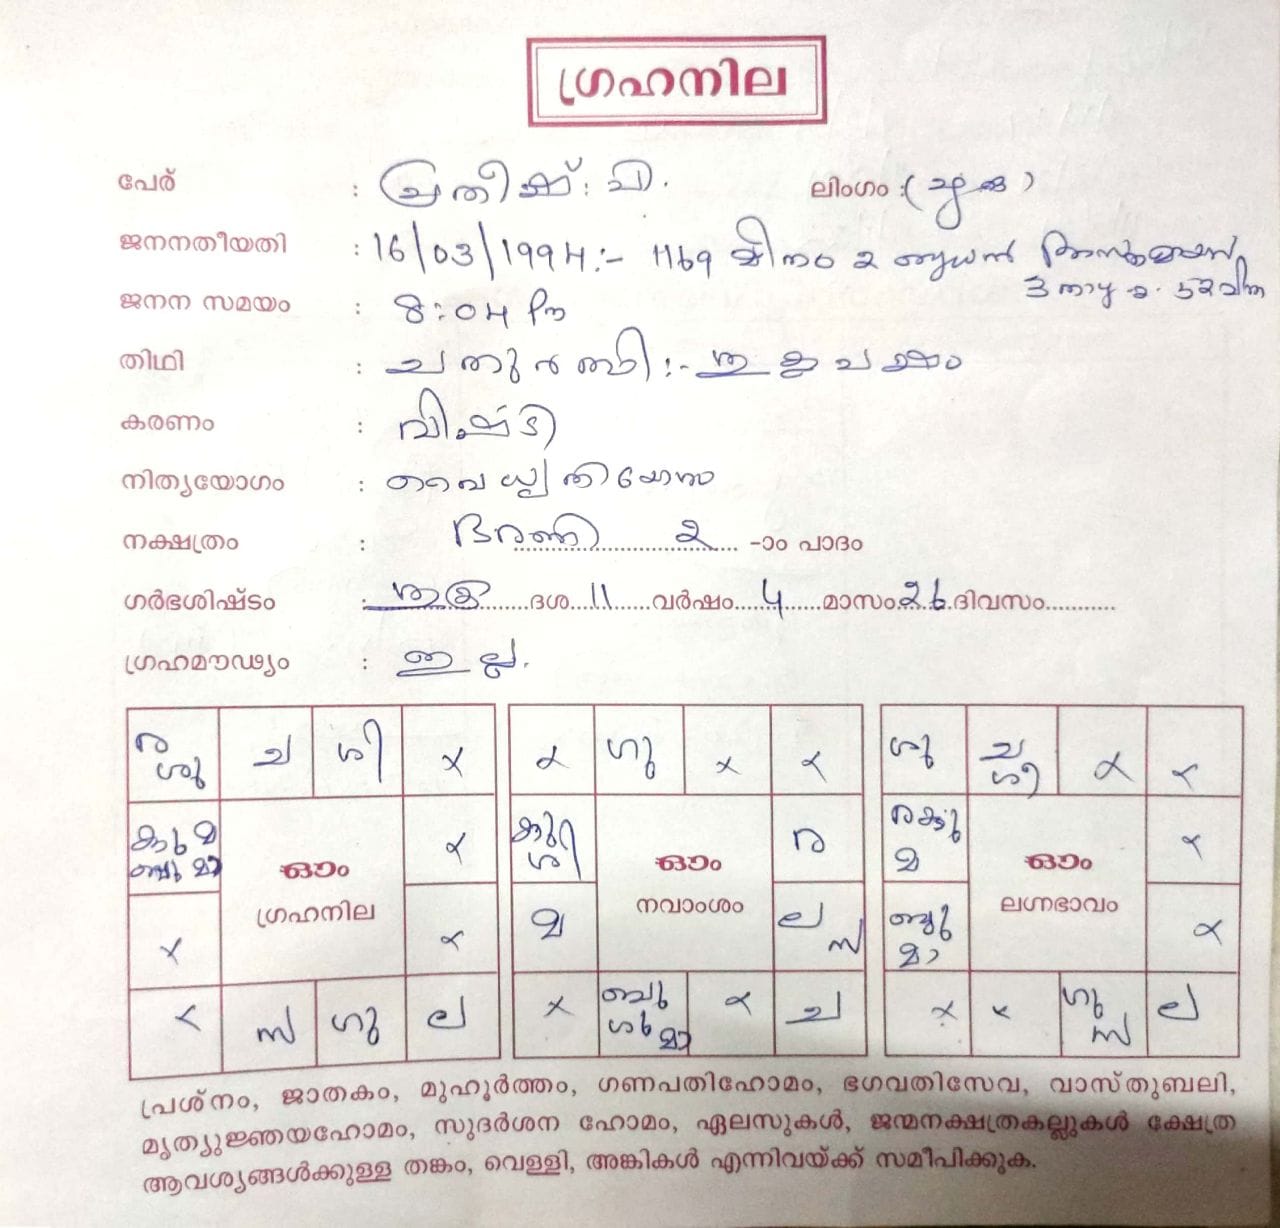 ഗ്രഹനില
പേര് : പ്രതീഷ്. പി. ലിംഗം :( പുരു )
ജനനതീയതി : 16/03/1994:- 1169 മീനം 2 ബുധൻ
3 നാഴിക 52 വിന
ജനന സമയം : 8:04 Pm
തിഥി : ചതുർത്ഥി:- ശുക്ലപക്ഷം
കരണം : വിഷ്ടി
നിത്യയോഗം : വൈധൃതിയോഗം
നക്ഷത്രം : ഭരണി 2 -ാം പാദം
ഗർഭശിഷ്ടം : ശുക്ര ദശ 11 വർഷം 4 മാസം 26 ദിവസം
ഗ്രഹമൗഢ്യം : ഇല്ല.
ര ശു ച ശി x x ഗു x x ശു ച ശി x x
കു മ ബു മാ x കു ശി ര ര കു മ x
ഓം ഓം ഓം
ഗ്രഹനില നവാംശം ലഗ്നഭാവം
x x മ ല സ ബു മാ x
x സ ഗു ല x ബു ശു മാ x ച x x ഗു സ ല
പ്രശ്നം, ജാതകം, മുഹൂർത്തം, ഗണപതിഹോമം, ഭഗവതിസേവ, വാസ്തുബലി,
മൃത്യുഞ്ജയഹോമം, സുദർശന ഹോമം, ഏലസുകൾ, ജന്മനക്ഷത്രകല്ലുകൾ ക്ഷേത്ര
ആവശ്യങ്ങൾക്കുള്ള തങ്കം, വെള്ളി, അങ്കികൾ എന്നിവയ്ക്ക് സമീപിക്കുക.